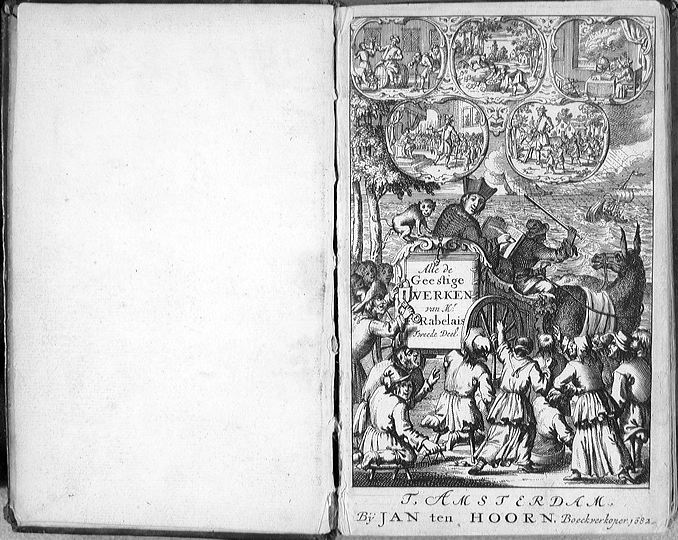 Alle de
Geestige
WERKEN
van Mr.
Rabelais
Tweede Deel.
T. AMSTERDAM,
By JAN ten HOORN. Boeckverkoper. 1682.